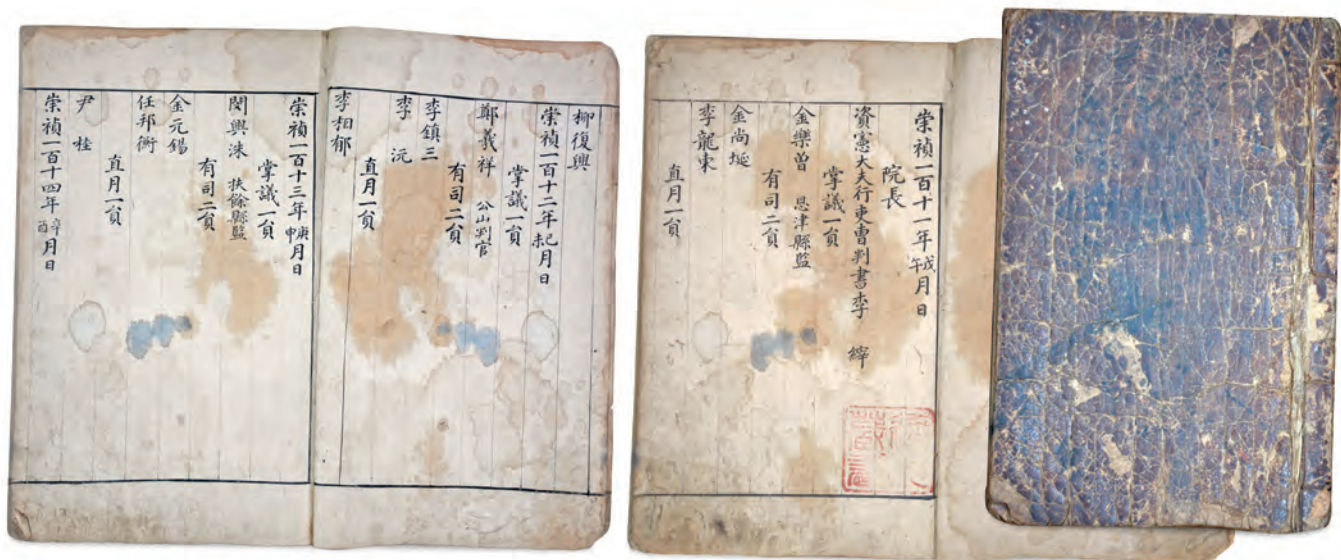 崇禎一百十一年戊午月日
院長
資憲大夫行吏曹判書李 縡
掌議一貟
金樂曾 恩津縣監
有司二貟
金尚埏
李龍東
直月一貟
柳復興
崇禎一百十二年己未月日
掌議一貟
鄭義祥 公山判官
有司二貟
李鎮三
李 沅
直月一貟
李相郁
崇禎一百十三年庚申月日
掌議一貟
閔興洙 扶餘縣監
有司二貟
金元錫
任邦衡
直月一貟
尹 桂
崇禎一百十四年辛酉月日